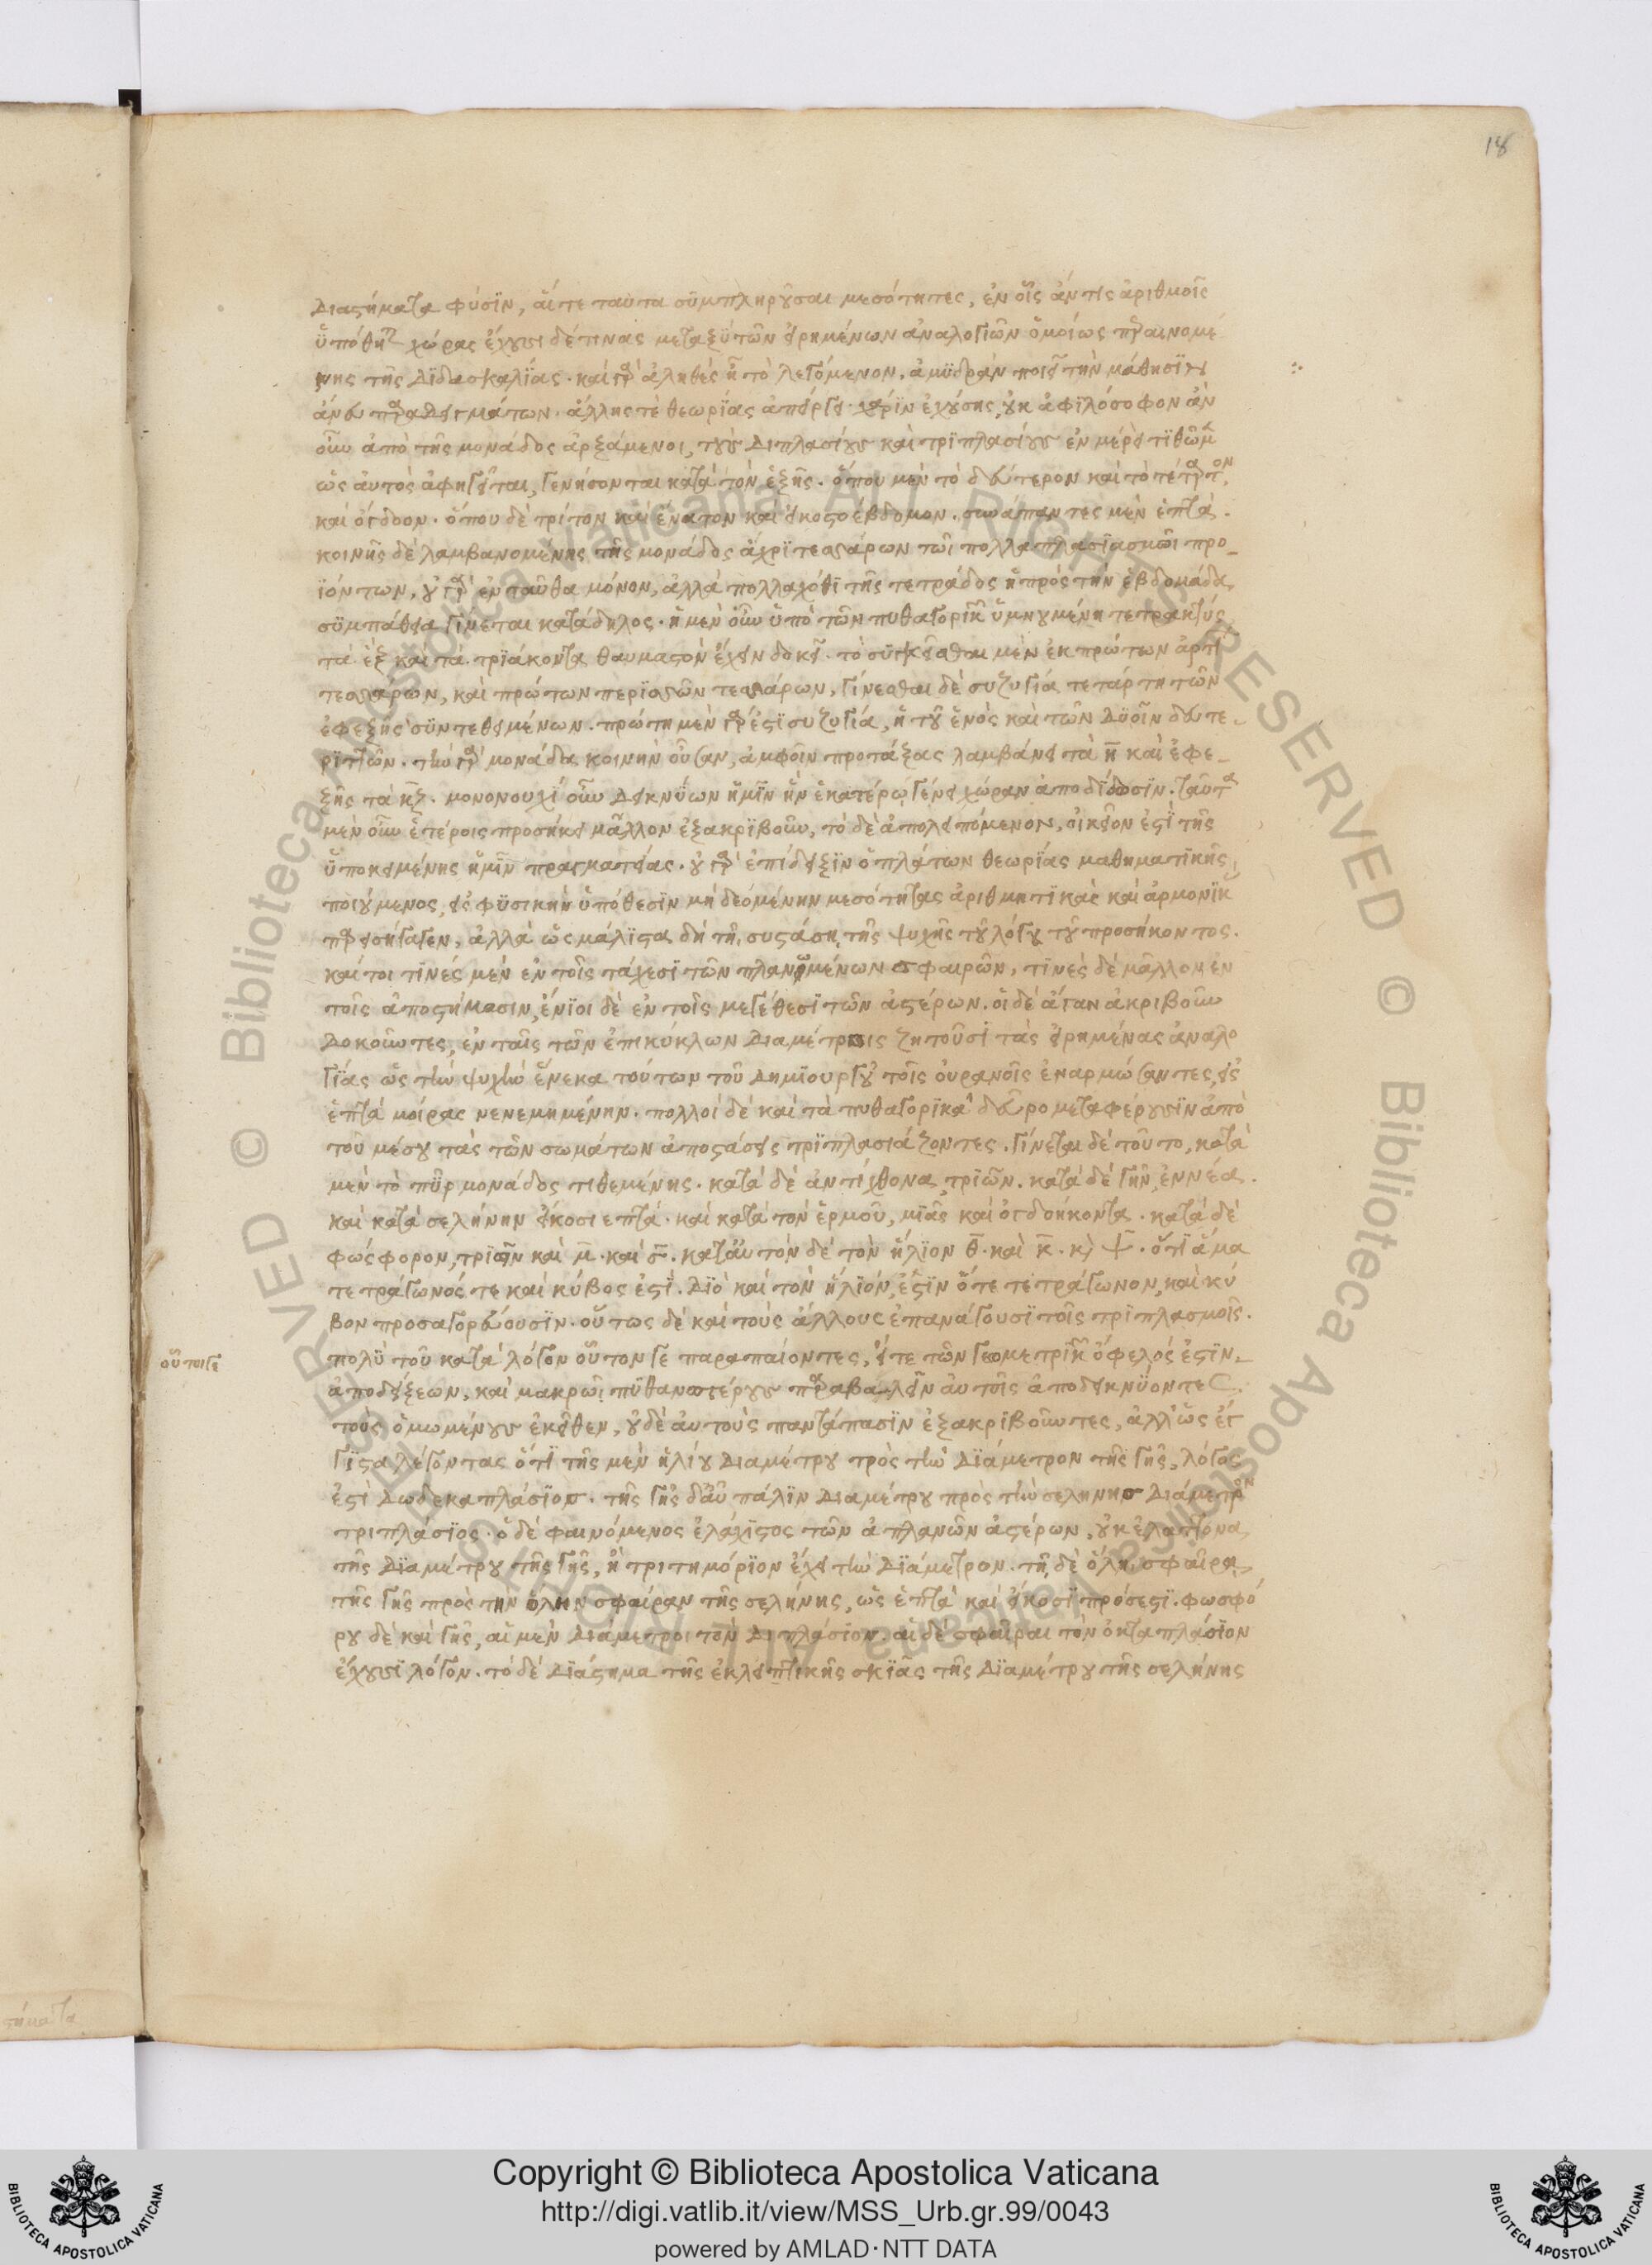 18
διαστήματα φύσϊν, αἵτε ταῦτα συμπληροῦσαι μεσότητες, ἐν οἷς ἄν τις ἀριθμοῖς
χώρας ἔχουσι δέ τινας μεταξὺ τῶν εἰρημένων ἀναλογιῶν ὁμοίως
νης τῆς διδασκαλίας. καὶ γὰρ ἀληθὲς ᾖ τὸ λεγόμενον, ἀμυδρὰν ποιεῖ τὴν μάθησϊν
ἄνευ παραδειγμάτων. ἄλλης τὲ θεωρίας ἀπείργει χάρϊν ἐχούσης, οὐκ ἀφϊλόσοφον ἂν
οὖν ἀπὸ τῆς μονάδος ἀρξάμενοι, τοὺς διπλασίους καὶ τρϊπλασίους ἐν μέρει τϊθῶμ
ὡς αὐτὸς ἀφηγεῖται, γενήσονται κατὰ τὸν ἑξῆς. ὅπου μὲν τὸ δεύτερον καὶ τὸ τέταρτον,
καὶ ὄγδοον. ὅπου δὲ τρίτον καὶ ἔνατον καὶ εἰκοστοέβδομον. συνάπαντες μὲν ἑπτά.
κοινῆς δὲ λαμβανομένης τῆς μονάδος ἄχρϊ τεσσάρων τῶι πολλαπλασϊασμῶι προ-
ϊόντων, οὐ γὰρ ἐνταῦθα μόνον, ἀλλὰ πολλαχόθϊ τῆς τετράδος ἡ πρὸς τὴν ἑβδομάδα
συμπάθεια γίνεται κατάδηλος. ἡ μὲν οὖν ὑπὸ τῶν πυθαγορικ ὑμνουμένη τετρακτύς
τὰ ἓξ καὶ τὰ τρϊάκοντα θαυμαστὸν ἔχειν δοκεῖ. τὸ συγκεῖσθαι μὲν ἐκ πρώτων ἀρτί
τεσσάρων, καὶ πρώτων περϊσσῶν τεσσάρων, γίνεσθαι δὲ συζυγία τετάρτη τῶν
ἐφεξῆς συντεθειμένων. πρώτη μὲν γάρ ἐστϊ συζυγία, ἡ τοῦ ἑνὸς καὶ τῶν δυοῖν δευτε
ριττῶν. τὴν γὰρ μονάδα κοινὴν οὖσαν, ἀμφοῖν προτάξας λαμβάνει τὰ η καὶ ἐφε-
ξῆς τὰ κζ. μονονουχὶ οὖν δεικνύων ἡμῖν ἣν ἑκατέρῳ γένει χώραν ἀποδίδωσϊν. ταῦτ
μὲν οὖν ἑτέροις προσήκει μᾶλλον ἐξακρϊβοῦν, τὸ δὲ ἀπολειπόμενον, οἰκεῖον ἐστϊ τῆς
ὑποκειμένης ἡμῖν πραγματείας. οὐ γὰρ ἐπίδειξϊν ὁ πλάτων θεωρίας μαθηματϊκῆς
ποιούμενος, εἰς φυσικὴν ὑπόθεσϊν μὴ δεομένην μεσότητας ἀριθμητϊκὰς καὶ ἁρμονϊκ
παρεισήγαγεν, ἀλλὰ ὡς μάλϊστα δὴ τῇ συστάσῃ τῆς ψυχῆς τοῦ λόγου τοῦ προσήκοντος.
καί τοι τϊνὲς μὲν ἐν τοῖς τάχεσϊ τῶν πλανωμένων σφαιρῶν, τϊνὲς δὲ μᾶλλον ἐν
τοῖς ἀποστήμασιν, ἔνϊοι δὲ ἐν τοῖς μεγέθεσϊ τῶν ἀστέρων. οἱ δὲ ἄγαν ἀκριβοῦν
δοκοῦντες, ἐν ταῖς τῶν ἐπικύκλων διαμέτροις ζητοῦσϊ τὰς εἰρημένας ἀναλο
γίας ὡς τὴν ψυχὴν ἕνεκα τούτων τοῦ δημϊουργοῦ τοῖς οὐρανοῖς ἐναρμώσαντες, εἰς
ἑπτὰ μοίρας νενεμημένην. πολλοὶ δὲ καὶ τὰ πυθαγορϊκὰ δεῦρο μεταφέρουσϊν ἀπὸ
τοῦ μέσου τὰς τῶν σωμάτων ἀποστάσεις τρϊπλασιάζοντες. γίνεται δὲ τοῦτο, κατὰ
μὲν τὸ πῦρ μονάδος τιθεμένης. κατὰ δὲ ἀντίχθονα, τρϊῶν. κατὰ δὲ γῆν, ἐννέα.
καὶ κατὰ σελήνην εἴκοσι επτά. καὶ κατὰ τὸν ἑρμοῦ, μϊᾶς καὶ ὀγδοήκοντα. κατὰ δὲ
φωσφορον, τρϊῶν καὶ μ. καὶ σ. κατ᾽ αὐτὸν δὲ τὸν ἥλϊον θ. καὶ κ. κ ψ. ὅτϊ ἅμα
τετράγωνός τε καὶ κύβος ἐστϊ. διὸ καὶ τὸν ἥλϊόν, ἐστϊν ὅτε τετράγωνον, καὶ κύ
βον προσαγορεύουσϊν. οὕτως δὲ καὶ τοὺς ἄλλους ἐπανάγουσϊ τοῖς τρϊπλασμοῖς.
πολὺ τοῦ κατὰ λόγον οὗτον γε παραπαίοντες, εἴτε τῶν γεωμετρικ ὄφελός ἐστϊν
οὗτοιγε
ἀποδείξεων, καὶ μακρῶι πϊθανωτέρους παραβαλεῖν αὐτοῖς ἀποδεικνύοντες
τοὺς ὁμωμένους ἐκεῖθεν, οὐδὲ αὐτοὺς παντάπασϊν ἐξακρϊβοῦντες, ἀλλ᾽ ὡς ἔγ
γϊστα λέγοντας ὅτϊ τῆς μὲν ἡλίου διαμέτρου πρὸς τὴν διάμετρον τῆς γῆς, λόγος
ἐστὶ δωδεκαπλάσϊος. τῆς γῆς δ᾽ αὖ πάλϊν διαμέτρου προς τὴν σεληνης διάμετρον
τριπλάσϊος. ὁ δὲ φαινόμενος ἐλάχϊστος τῶν ἀπλανῶν ἀστέρων, οὐκ ἐλάττονα
τῆς διαμέτρου τῆς γῆς, ἢ τριτημόρϊον ἔχει τὴν διάμετρον. τῇ δὲ ὅλῃ σφαῖρα
τῆς γῆς πρὸς τὴν ὅλην σφαῖραν τῆς σελήνης, ὡς ἑπτὰ καὶ εἴκοσϊ πρόσεστϊ. φωσφό
ρου δὲ καὶ γῆς, αἱ μὲν διάμετροι τὸν διπλάσϊον. αἱ δὲ σφαῖραι τὸν ὀκταπλάσϊον
ἔχουσϊ λόγον. τὸ δὲ διάστημα τῆς ἐκλειπτικῆς σκϊᾶς τῆς διαμέτρου τῆς σελήνης
Copyright © Biblioteca Apostolica Vaticana
http://digi.vatlib.it/view/MSS_Urb.gr.99/0043
powered by AMLAD·NTT DATA